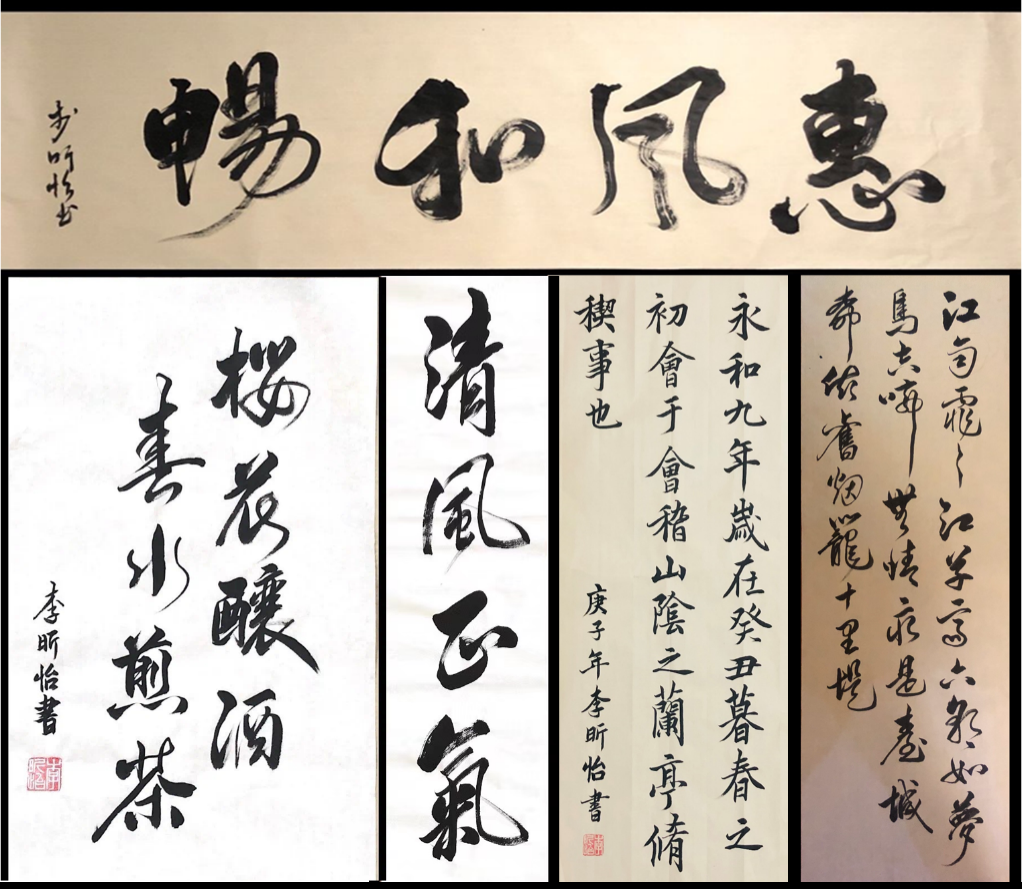 惠风和暢
李昕怡书
桜花釀酒
春水煎茶
李昕怡書
清風正氣
永和九年歲在癸丑暮春之
初會于會稽山陰之蘭亭脩
稧事也
庚子年李昕怡書
江雨霏々江草齊六朝如夢
鳥空啼無情最是臺城
柳依舊烟籠十里堤